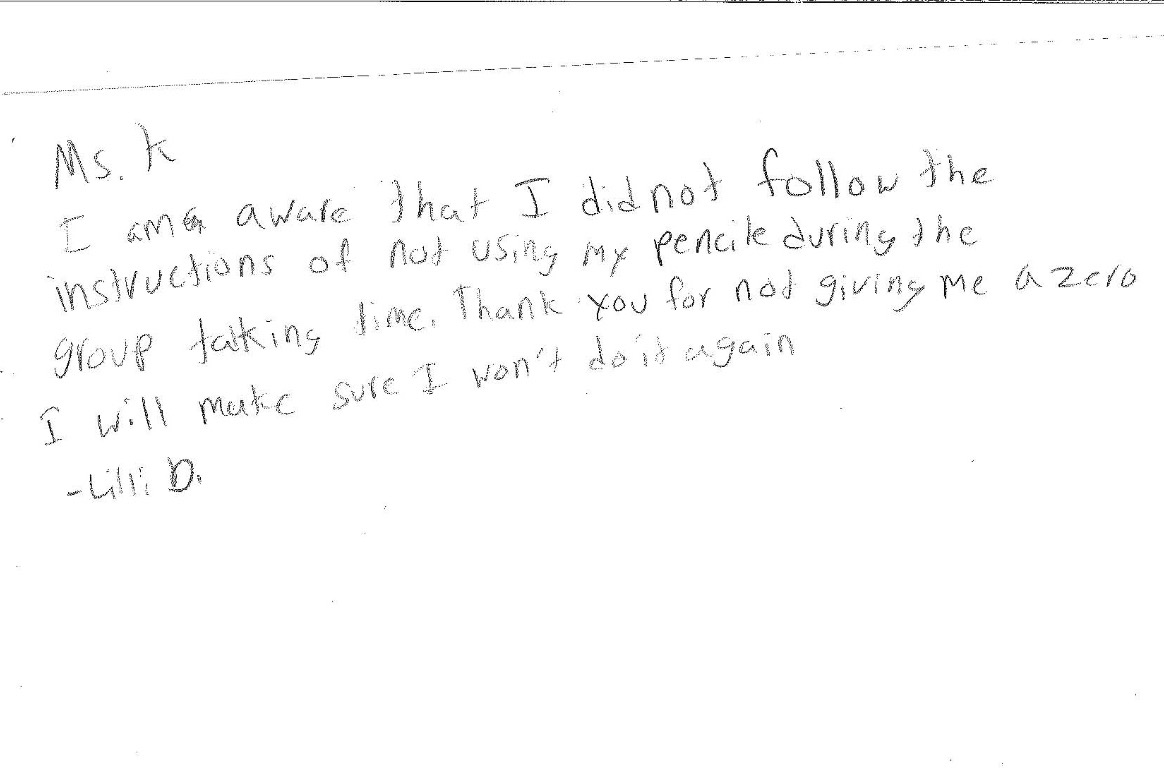 Ms. K
I am aware that I did not follow the
instructions of not using my pencile during the
group talking time. Thank you for not giving me a zero
I will make sure I won't do it again
-Lilli D.